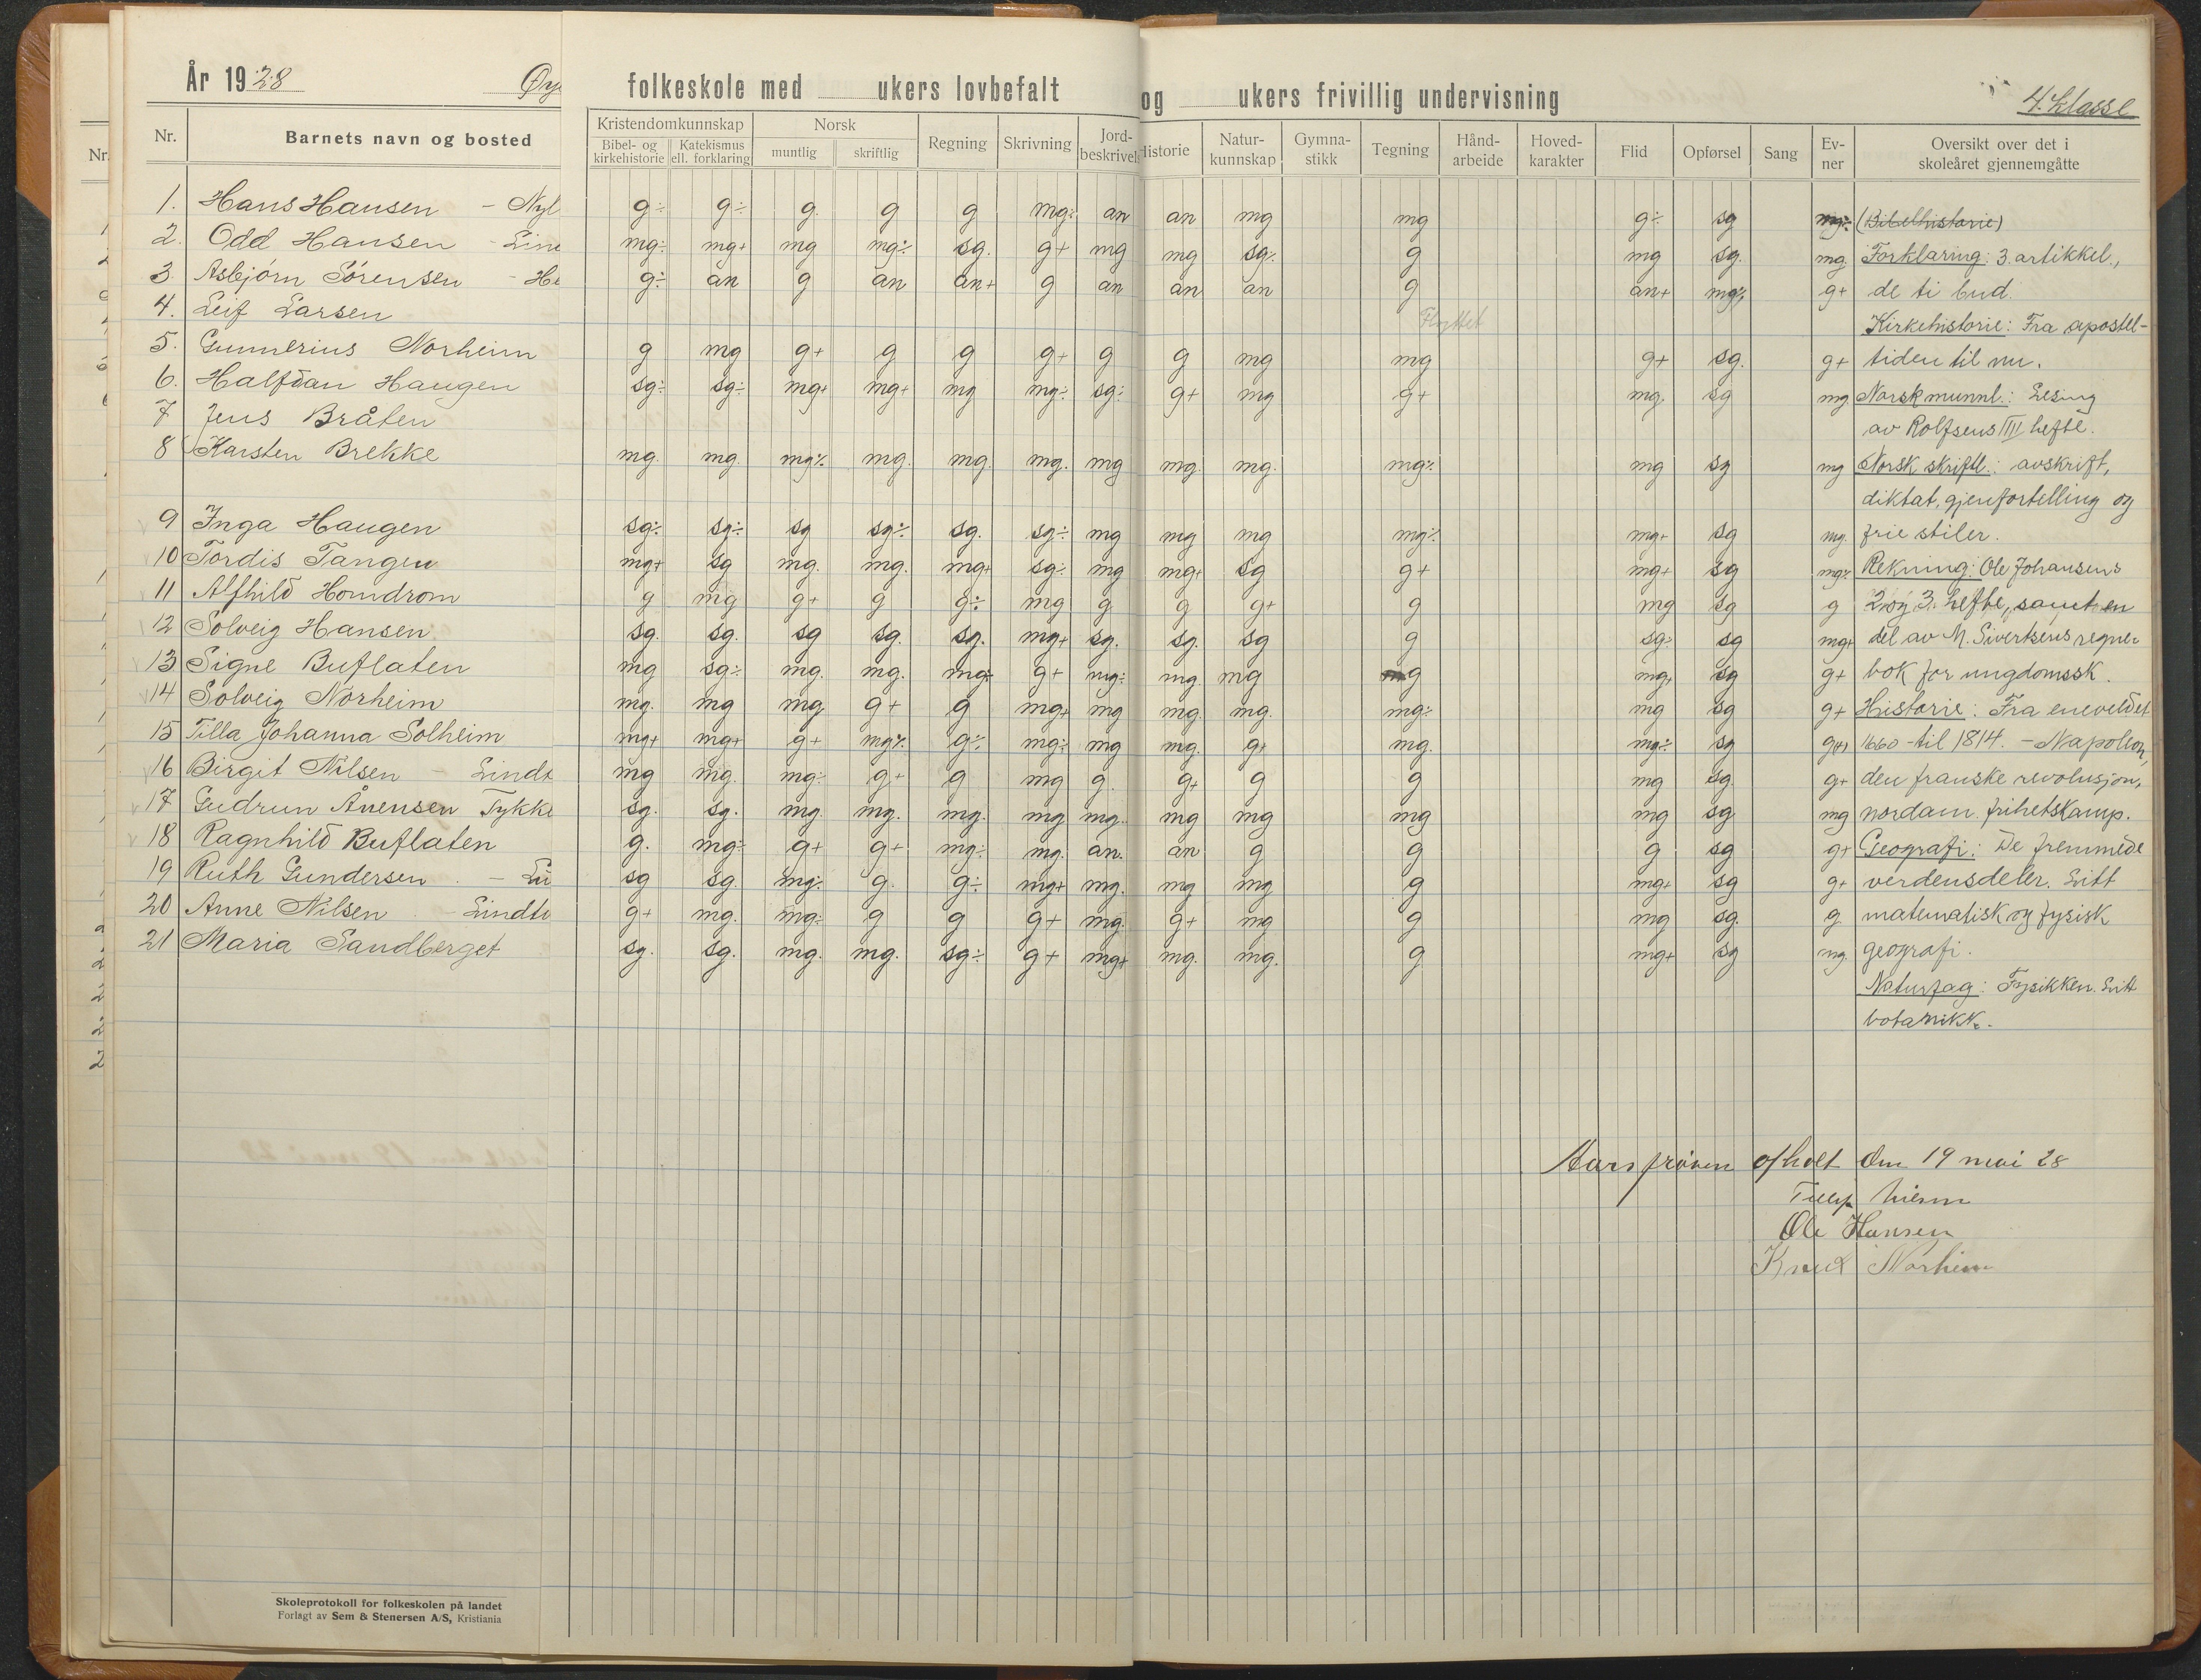 År 1928 Øy folkeskole med ukers lovbefalt og ukers frivillig undervisning 4. klasse
Nr. Barnets navn og bosted Kristendomkunnskap Norsk Regning Skrivning Jord- Historie Natur- Gymna- Tegning Hånd- Hoved- Flid Opførsel Sang Ev- Oversikt over det i
Bibel- og Katekismus muntlig skriftlig beskrivel kunnskap stikk arbeide karakter ner skoleåret gjennemgåtte
kirkehistorie ell. forklaring
1. Hans Hansen - Nyl g÷ g÷ g. g g mg÷ an an mg mg g÷ sg mg÷ (Bibelhistorie)
2. Odd Hansen - Lin mg÷ mg+ mg mg÷ sg. g+ mg mg sg÷ g mg sg. mg Forklaring: 3. artikkel.,
3 Asbjørn Sørensen - He g÷ an g an an+ g an an an g an+ mg÷ g+ de ti bud.
4. Leif Larsen Flyttet Kirkehistorie: Fra apostel-
5. Gunnerius Norheim g mg g+ g g g+ g g mg mg g+ sg. g+ tiden til nu.
6. Halfdan Haugen sg÷ sg÷ mg+ mg+ mg mg÷ sg÷ g+ mg g+ mg. sg mg Norsk munnl.: Lesing
7 Jens Bråten av Rolfsens III hefte.
8 Karsten Brekke mg. mg. mg÷ mg. mg. mg. mg mg. mg. mg÷ mg sg mg Norsk skriftl.: avskrift,
diktat, gjenfortelling og
9 Inga Haugen sg÷ sg÷ sg sg÷ sg. sg÷ mg mg mg mg÷ mg+ sg mg. frie stiler.
10 Tordis Tangen mg+ sg mg. mg. mg+ sg÷ mg mg+ sg g+ mg+ sg mg÷ Rekning: Ole Johansens
11 Alfhild Homdrom g mg g+ g g÷ mg g g g+ g mg sg g 2. og 3. hefte, samt en
12 Solveig Hansen sg. sg. sg sg. sg. mg+ sg. sg. sg g sg÷ sg mg+ del av M. Sivertsens regne-
13 Signe Buflaten mg sg÷ mg. mg. mg÷ g+ mg÷ mg. mg mg mg+ sg g+ bok for ungdomssk.
14 Solveig Norheim mg. mg mg g+ g mg+ mg mg. mg. mg÷ mg sg g+ Historie: Fra eneveldet
15 Tilla Johanna Solheim mg+ mg+ g+ mg÷ g÷ mg÷ mg mg. g+ mg. mg÷ sg g(+) 1660 - til 1814. - Napolion,
16 Birgit Nilsen - Lindt mg mg. mg÷ g+ g mg g. g+ g g mg sg. g+ den franske revolusjon,
17 Gudrun Ånensen Tykke sg. sg. mg. mg. mg. mg mg. mg mg mg mg sg mg nordam. frihetskamp.
18 Ragnhild Buflaten g. mg÷ g+ g+ mg÷ mg. an. an g g g sg g+ Geografi: De fremmede
19 Ruth Gundersen - Li sg sg. mg÷ g. g÷ mg+ mg. mg mg g mg+ sg g+ verdensdeler. Litt
20 Anne Nilsen - Lindt g+ mg. mg÷ g g g+ mg. g+ mg g mg sg. g matematisk og fysisk
21 Maria Sandberget sg. sg. mg. mg. sg÷ g+ mg+ mg. mg. g mg+ sg mg geografi.
Naturfag: Fysikken. Litt
botanikk.
Aarsprøven afholt den 19 mai 28
Ole Hansen
Knut Norheim
Skoleprotokoll for folkeskolen på landet
Forlagt av Sem & Stenersen A/S, Kristiania